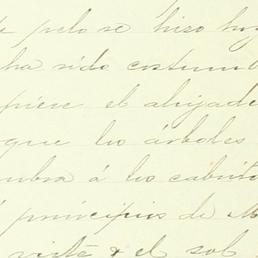 e pelo se hiso hoy
ha sido costumb
piece el ahijade
que los árboles
mbra á los cabrito
á principios de M
vista & el sol